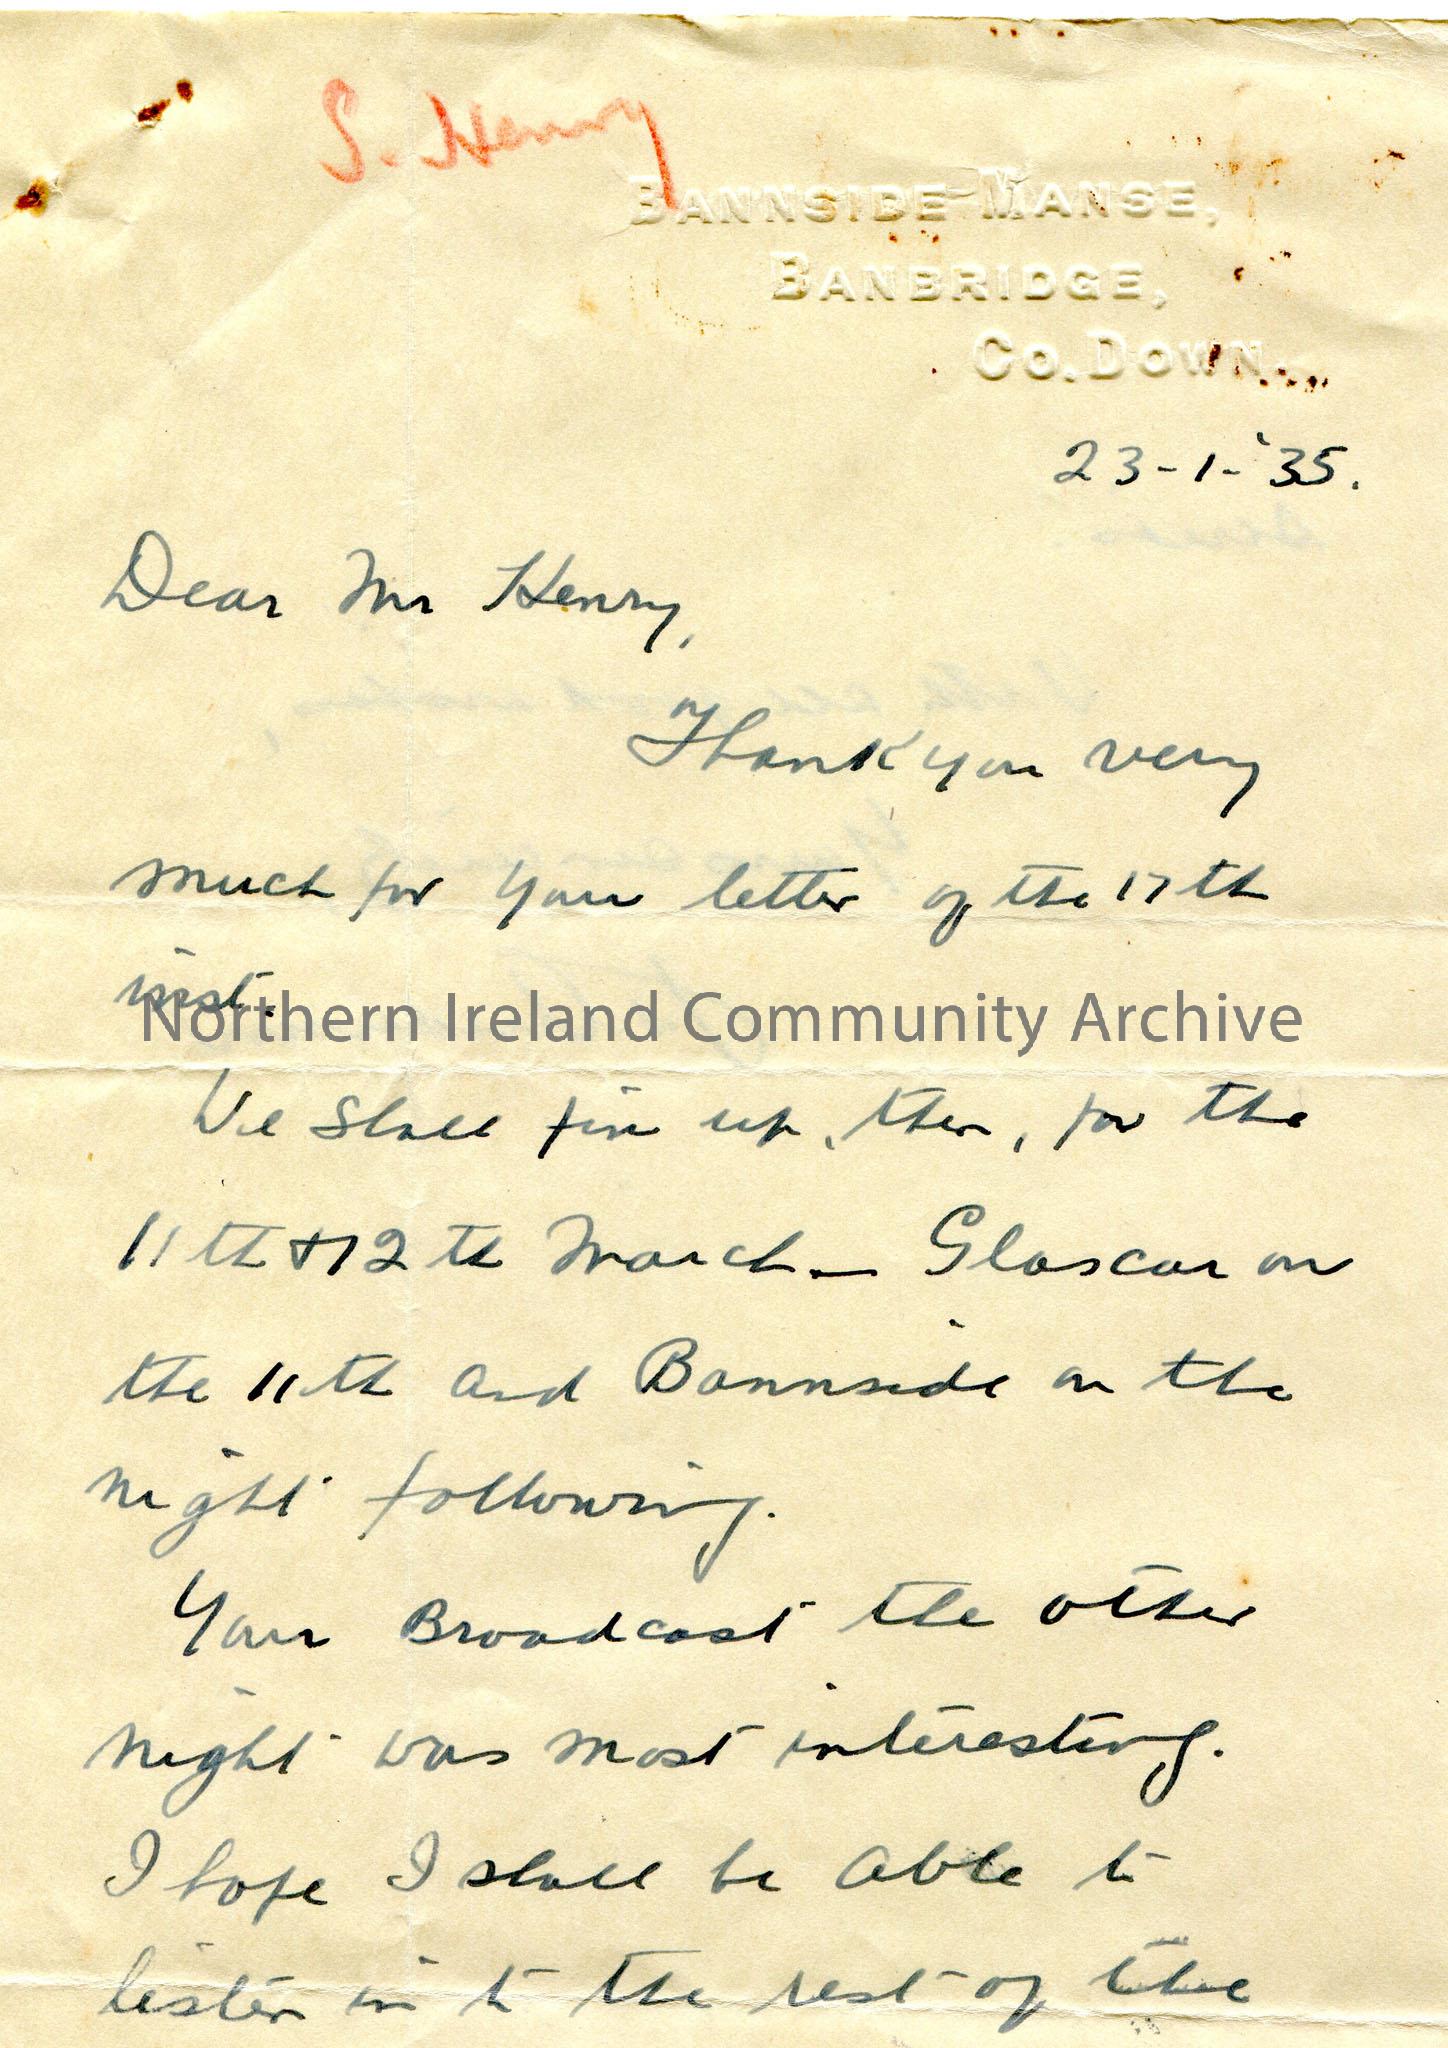 S. Henry
BANNSIDE MANSE,
BANBRIDGE,
CO. DOWN.
23-1-'35.
Dear Mr Henry,
Thank you very
much for your letter of the 17th
inst.
Northern Ireland Community Archive
We shall fix up, then, for the
11th & 12th March — Glascar on
the 11th and Bannside on the
night following.
Your Broadcast the other
night was most interesting.
I hope I shall be able to
listen in to the rest of the